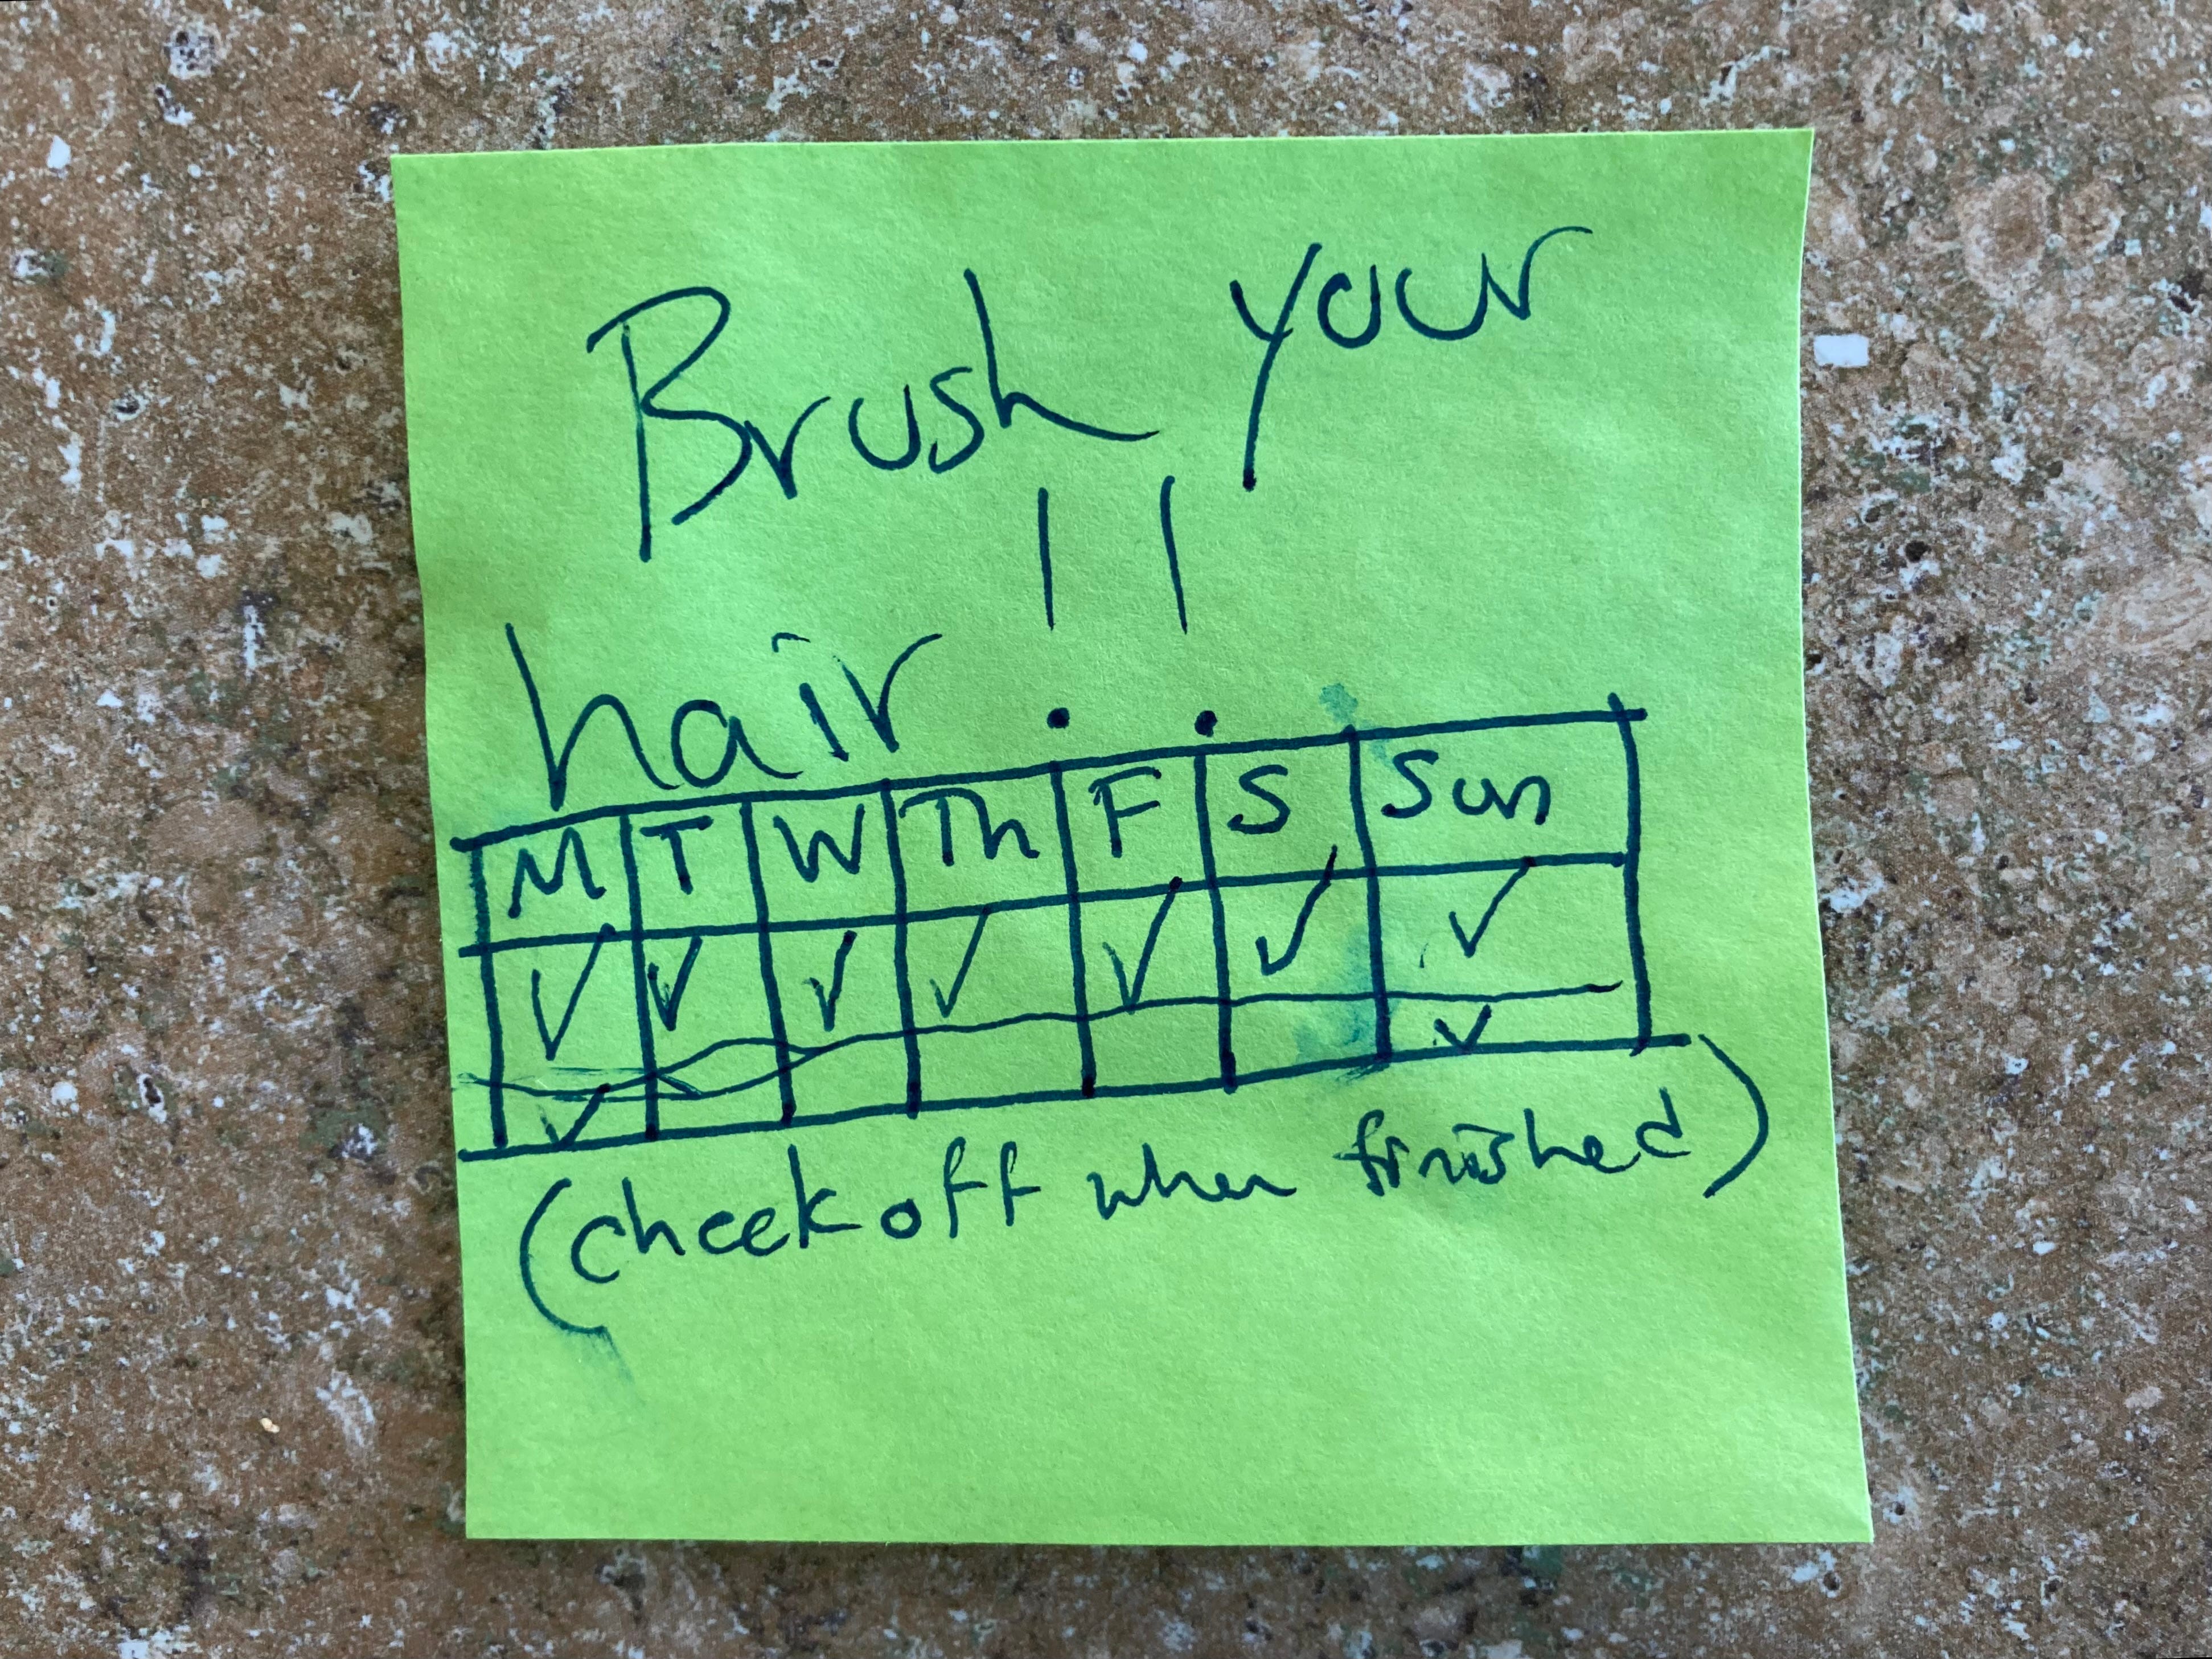 Brush your
hair !!
M T W Th F S Sun
✓ ✓ ✓ ✓ ✓ ✓ ✓
✓ ✓
(check off when finished)